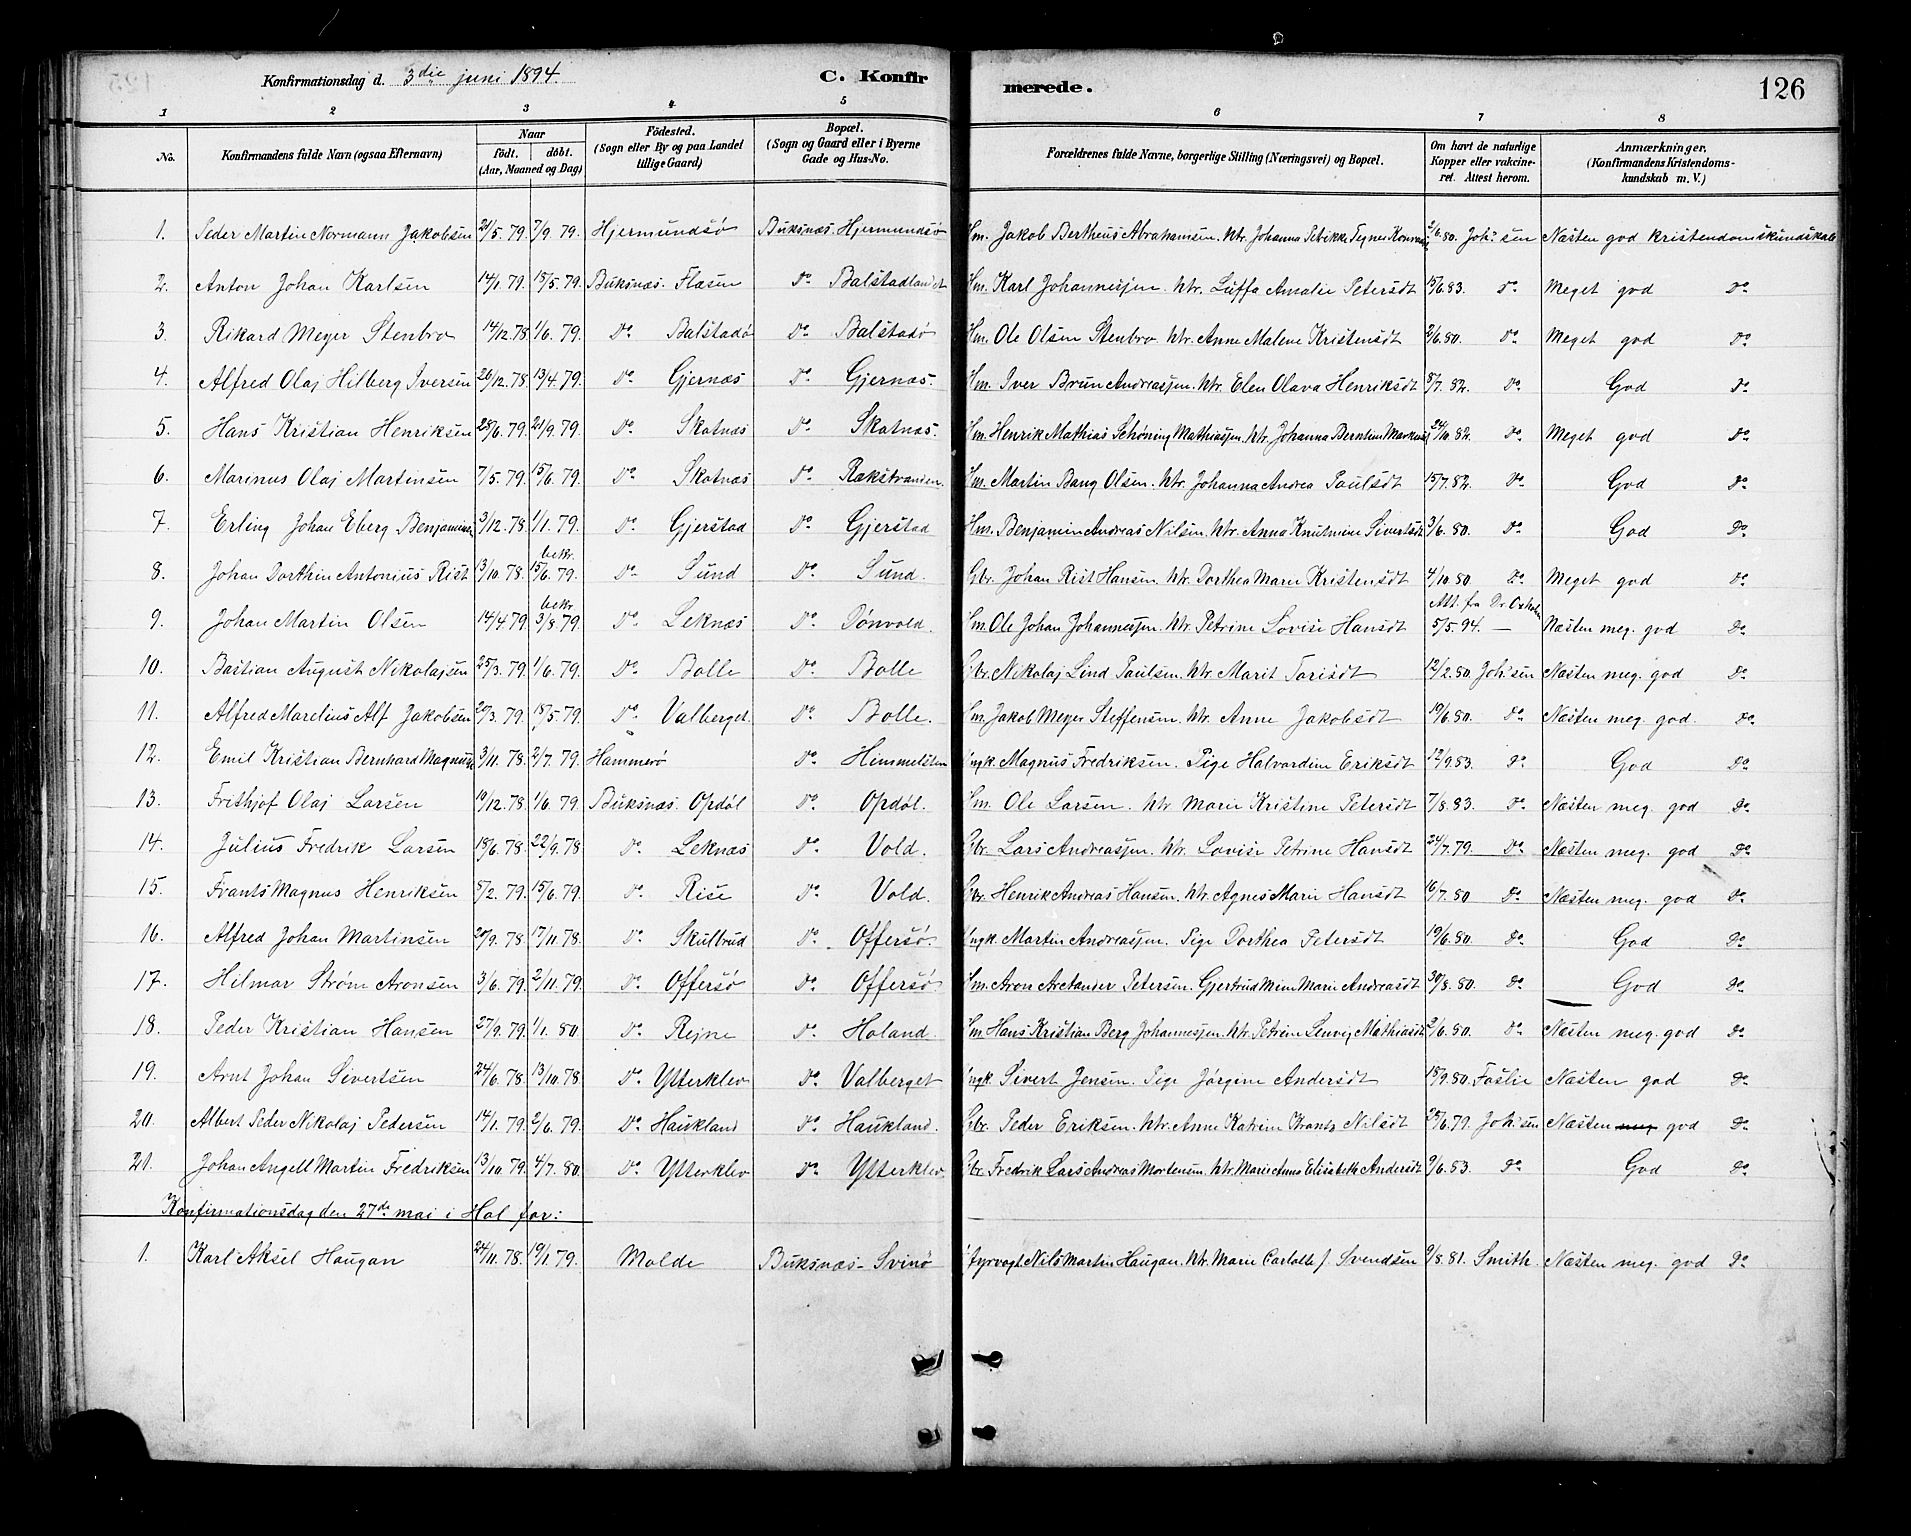 Konfirmationsdag d. 3die juni 1894. C. Konfirmerede. 126
1 2 3 4 5 6 7 8
No. Konfirmandens fulde Navn (ogsaa Efternavn) Naar födt. döbt. (Aar, Maaned og Dag) Födested. (Sogn eller By og paa Landet tillige Gaard) Bopæl. (Sogn og Gaard eller i Byerne Gade og Hus-No. Forældrenes fulde Navne, borgerlige Stilling (Næringsvei) og Bopæl. Om havt de naturlige Kopper eller vakcineret. Attest herom. Anmærkninger. (Konfirmandens Kristendomskundskab m. V.)
1. Peder Martin Normann Jakobsen 21/5.79. 7/9.79. Hjermundsø Buksnæs. Hjermundsø Hm. Jakob Bertheus Abrahamsen. Htr. Johanna Petrikke Tegner 2/6.80. Joh:sen Næsten god kristendomskundskab
2. Anton Johan Karlsen 14/1.79. 15/5.79. Buksnæs. Flæsen Do Balstadlandet Hm. Karl Johannessen. Htr. Luffa Amalie Petersdt 15/6.83. Do Meget god Do
3. Rikard Meyer Stenbro 14/12.78. 1/6.79. Do Balstadø Do Balstadø Hm. Ole Olsen Stenbro. Htr. Anne Malene Kristensdt 2/6.80. Do Meget god Do
4. Alfred Olaj Hilberg Iversen 26/12.78. 13/4.79. Do Gjernæs Do Gjernæs. Hm. Iver Brun Andreassen. Htr. Elen Olava Henriksdt 8/7.82. Do God Do
5. Hans Kristian Henriksen 28/6.79. 21/9.79. Do Skotnæs Do Skotnæs. Hm. Henrik Mathias Schøning Mathiassen. Htr. Johanna Berntine 24/10.82. Do Meget god Do
6. Marinus Olaj Martinsen 7/5.79. 15/6.79. Do Skotnæs Do Rækstranden Hm. Martin Bang Olsen. Htr. Johanna Andrea Paulsdt 15/7.82. Do God Do
7. Erling Johan Eberg Benjaminsen 3/12.78. 1/1.79. Do Gjerstad Do Gjerstad Hm. Benjamin Andreas Nilsen. Htr. Anna Knutmine Sivertsdt 3/6.80. Do God Do
8. Johan Dorthin Antonius Rist 13/10.78. bekr. 15/6.79. Do Sund Do Sund. Gbr. Johan Rist Hansen. Htr. Dorthea Marie Kristensdt 4/10.80 Do Meget god Do
9. Johan Martin Olsen 14/4.79. bekr. 3/8.79. Do Leknæs Do Tønvold. Hm. Ole Johan Johannessen. Htr. Petrine Lovise Hansdt Att. fra Dr. 5/5.94. — Næsten meg. god Do
10. Bastian August Nikolajsen 25/3.79. 1/6.79. Do Bolle Do Bolle Gbr. Nikolaj Lind Paulsen. Htr. Marit Torisdt 12/2.80. Joh:sen Næsten meg. god Do
11. Alfred Marelius Alf Jakobsen 20/3.79. 18/5.79. Do Valberget. Do Bolle. Hm. Jakob Meyer Steffensen. Htr. Anne Jakobsdt 19/6.80. Do Næsten meg. god. Do
12. Emil Kristian Bernhard Magnussen 3/11.78. 2/7.79. Hammerø Do Himmelsten Ungk. Magnus Fredriksen. Pige Halvardine Eriksdt 12/9.83. Do God Do
13. Frithjof Olaj Larsen 19/12.78. 1/6.79. Buksnæs. Opdøl Do Opdøl. Hm. Ole Larsen. Htr. Marie Kristine Petersdt 7/8.83. Do Næsten meg. god Do
14. Julius Fredrik Larsen 18/6.78. 22/9.78 Do Leknæs Do Vold. Gbr. Lars Andreassen. Htr. Lovise Petrine Hansdt 24/7.79. Do Næsten meg. god Do
15. Frants Magnus Henriksen 8/2.79. 15/6.79. Do Rise Do Vold. Gbr. Henrik Andreas Hansen. Htr. Agnes Marie Hansdt 16/7.80 Do Næsten meg. god Do
16. Alfred Johan Martinsen 20/9.78. 17/11.78. Do Skulbrud Do Offersø. Ungk. Martin Andreassen. Pige Dorthea Petersdt 19/6.80. Do God Do
17. Hilmar Strøm Aronsen 3/6.79. 2/11.79. Do Offersø Do Offersø. Hm. Aron Arctander Petersen. Gjertrud Mine Marie Andreasdt 30/8.80. Do God Do
18. Peder Kristian Hansen 27/9.79. 1/1.80. Do Rejne Do Holand. Hm. Hans Kristian Berg Johannessen. Htr. Petrine Lenvig Mathiasdt 2/6.80. Do Næsten meg. god Do
19. Arnt Johan Sivertsen 24/6.78. 13/10.78. Do Ytterklev Do Valberget Ungk. Sivert Jensen. Pige Jørgine Andersdt 18/9.80. Foslie Næsten god Do
20. Albert Peder Nikolaj Pedersen 14/1.79. 2/6.79. Do Haukland Do Haukland. Gbr. Peder Eriksen. Htr. Anne Katrine Krantz Nilsdt 25/6.79. Joh:sen Næsten meg god Do
21. Johan Angell Martin Fredriksen 13/10.79. 4/7.80. Do Ytterklev Do Ytterklev. Gbr. Fredrik Lars Andreas Mortensen. Htr. Marie Anna Elisabeth Andersdt 9/6.83. Do God Do
Konfirmationsdag den 27de mai i Hol for:
1. Karl Aksel Haugan 24/11.78. 19/1.79. Molde Buksnæs - Svinø Fyrvogt Nils Martin Haugan. Htr. Marie Carlotte f. Svendsen 9/8.81. Smith. Næsten meg. god Do